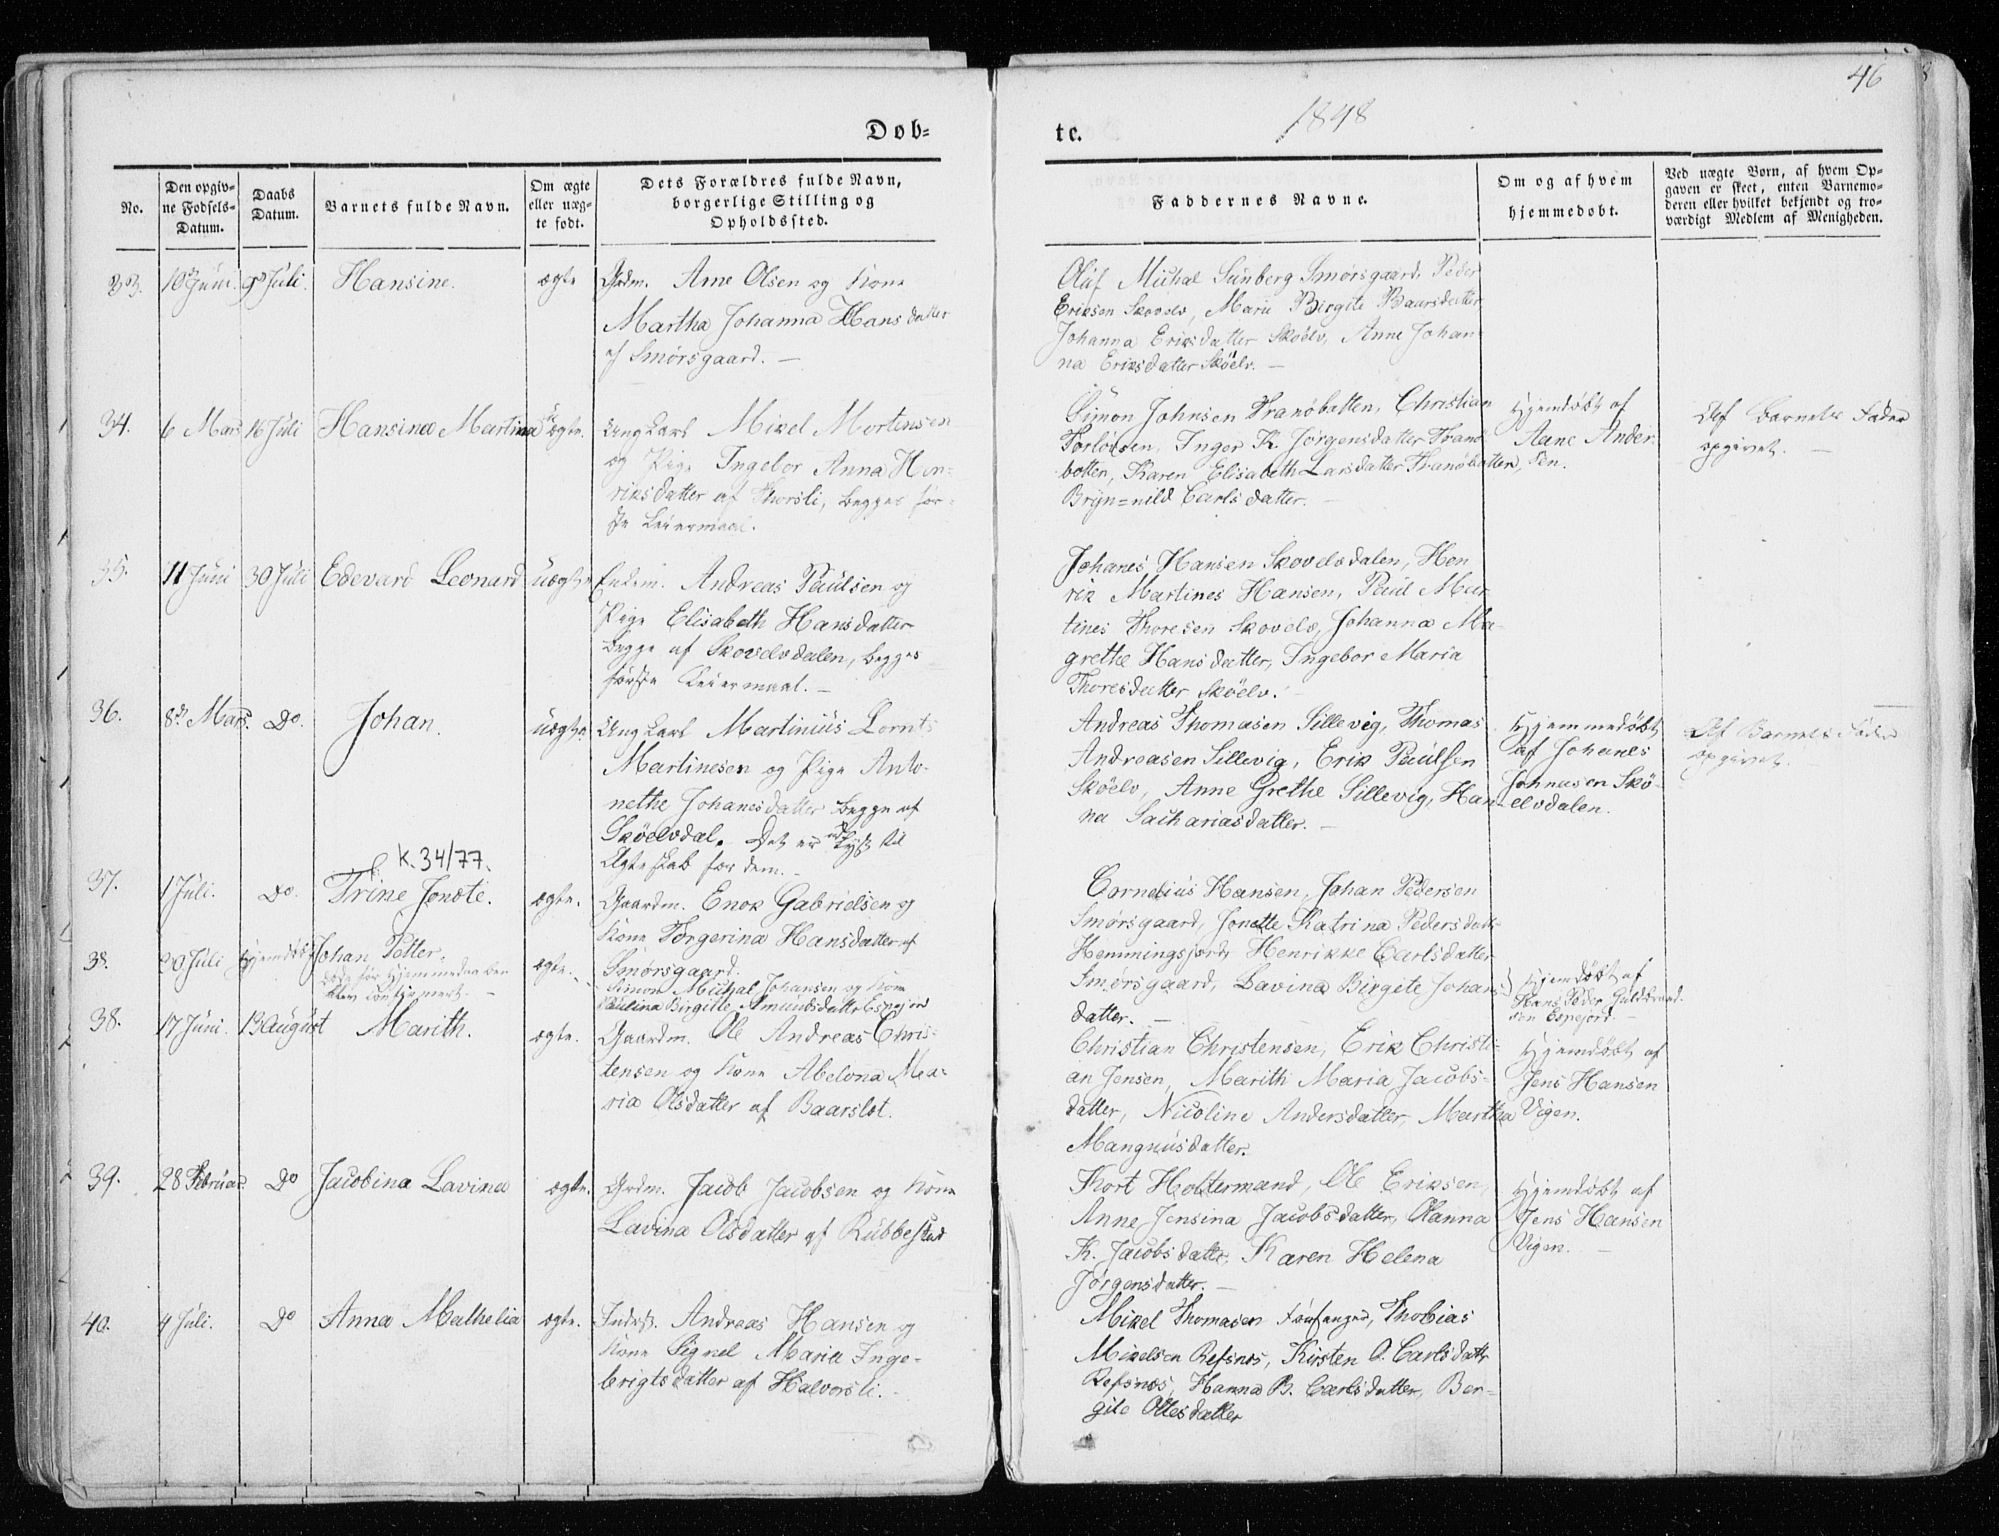 46
1848
Døb-
te.
No.
Den opgiv-
ne Fødsels-
Datum.
Daabs
Datum.
Barnets fulde Navn.
Om ægte
eller uæg-
te født.
Dets Forældres fulde Navn,
borgerlige Stilling og
Opholdssted.
Faddernes Navne.
Om og af hvem
hjemmedøbt.
Ved uægte Børn, af hvem Op-
gaven er skeet, enten Barnemo-
deren eller hvilket bekjendt og tro-
værdigt Medlem af Menigheden.
33. 10 Juni. 9 Juli. Hansine. ægte
Grdm. Arne Olsen og Kone
Martha Johanna Hansdatter
af Smørsgaard. —
Oluf Michal Sunberg Smørsgaard, Peder
Eriksen Skovelv, Marie Birgite Baarsdatter
Johanna Eriksdatter Skøelv, Anne Johan-
na Eriksdatter Skøelv. —
34. 6 Mars 16 Juli Hansina Martina uægte.
Ung Karl Mikel Mortensen
og Pige Ingebor Anna Hen-
riksdatter af Thorsli, begges før-
ste Leiermaal.
Simon Johnsen Tranøbotten, Christian
Torloisen, Inger K. Jørgensdatter Tranø-
botten, Karen Elisabeth Larsdatter Tranøbotten,
Bryn=nild Carlsdatter. —
Hjemdøbt af
Aane Ander-
sen.
Af Barnets Fader
opgivet. —
35. 11 Juni 30 Juli Edevard Leonard uægte
Enkem. Andreas Paulsen og
Pige Elisabeth Hansdatter
begge af Skovelvdalen, begges
første Leiermaal. —
Johanes Hansen Skovelvdalen, Hen
rik Martines Hansen, Paul Mar
tines Thoresen Skovelv, Johanna Ma-
grethe Hansdatter, Ingebor Maria
Thoresdatter Skøelv. —
36. 8 Mars. Do. Johan. uægte.
Ung Karl Martinius Lornts
Martinesen og Pige Anto-
nethe Johanesdatter begge af
Skøelvdal. Det er udlyst til
Ægteskab for dem. —
Andreas Thomasen Sillevig, Thomas
Andreasen Sillevig, Erik Paulsen
Skøelv, Anne Grethe Sillevig, Han-
na Sachariasdatter. —
Hjemmedøbt
af Johanes
Johnasen Skø-
elvdalen.
Af Barnets Fader
opgivet. —
K. 34/77.
37. 1 Juli. Do. Trine Jonete. ægte.
Gaardm. Enok Gabrielsen og
Kone Torgerina Hansdatter af
Smørsgaard.
Cornelius Hansen, Johan Pedersen
Smørsgaard, Jonette Katrina Pedersdatter
Hemmingsjord, Henrikke Carlsdatter
Smørsgaard, Lavina Birgite Johans-
datter. —
38. 20 Juli Hjemdøbt Johan Petter.
døde før Hjemmedaaben
blev confirmert. —
ægte.
Simon Michal Johansen og Kone
Paulina Birgitte Amundsdatter Espejord
Hjemdøbt af
Hans Peder Guldbrand-
sen Espejord. —
38. 17 Juni. 13 August Marith. ægte.
Gaardm. Ole Andreas Chris-
tensen og Kone Abelona Ma-
ria Olsdatter af Baarslet.
Christian Christensen, Erik Christi-
an Jensen, Marith Maria Jacobs-
datter, Nicoline Andersdatter, Martha
Mangnusdatter.
Hjemdøbt af
Jens Hansen
Vigen.
39. 28 Februar. Do Jacobina Lavina ægte.
Grdm. Jacob Jacobsen og Kone
Lavina Olsdatter af Rubbestad
Kort Holtermand, Ole Eriksen,
Anne Jensina Jacobsdatter, Olanna
K. Jacobsdatter, Karen Helena
Jørgensdatter. —
Hjemdøbt af
Jens Hansen
Vigen. —
40. 4 Juli. Do Anna Mathelia ægte.
Inderst. Andreas Hansen og
Kone Signel Maria Inge-
brigtsdatter af Halvorsli. —
Mikel Thomasen Finfanger, Thobias
Mikelsen Refsnes, Kirsten O. Carlsdatter
Refsnes, Hanna B. Carlsdatter, Ber-
gite Ottesdatter